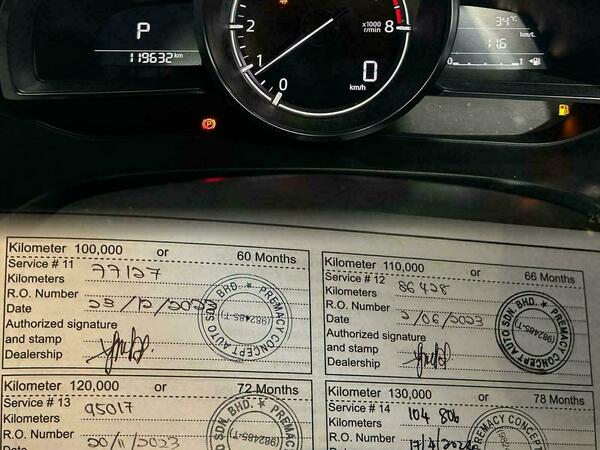 P
119632 km
2
1
0
x1000
r/min
8
0
km/h
34°C
11.6
km/L
0
1
P
Kilometer 100,000 or 60 Months
Service # 11
Kilometers 77127
R.O. Number
Date 23/12/2022
Authorized signature
and stamp
Dealership
PREMACY CONCEPT AUTO SDN. BHD. *
(982485-T)
Kilometer 110,000 or 66 Months
Service # 12
Kilometers 86428
R.O. Number
Date 2/06/2023
Authorized signature
and stamp
Dealership
PREMACY CONCEPT AUTO SDN. BHD. *
(982485-T)
Kilometer 120,000 or 72 Months
Service # 13
Kilometers 95017
R.O. Number
Date 20/11/2023
SDN. BHD. * PREMACY
(982485-T)
Kilometer 130,000 or 78 Months
Service # 14
Kilometers 104 806
R.O. Number
PREMACY CONCEPT